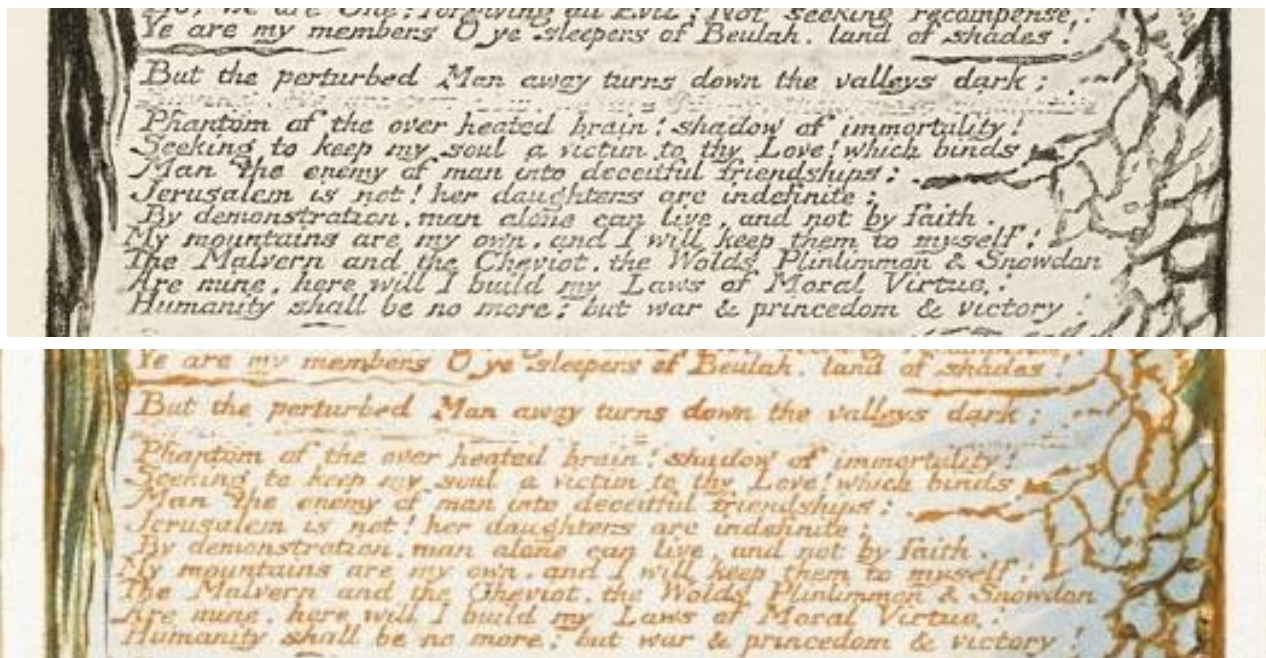 Lo! we are One; forgiving all Evil; Not seeking recompense;
Ye are my members O ye sleepers of Beulah, land of shades!
But the perturbed Man away turns down the valleys dark;
Phantom of the over heated brain! shadow of immortality!
Seeking to keep my soul a victim to thy Love! which binds
Man the enemy of man into deceitful friendships:
Jerusalem is not! her daughters are indefinite:
By demonstration, man alone can live, and not by faith.
My mountains are my own, and I will keep them to myself!
The Malvern and the Cheviot, the Wolds Plinlimmon & Snowdon
Are mine, here will I build my Laws of Moral Virtue,
Humanity shall be no more: but war & princedom & victory
Ye are my members O ye sleepers of Beulah, land of shades!
But the perturbed Man away turns down the valleys dark;
Phantom of the over heated brain! shadow of immortality!
Seeking to keep my soul a victim to thy Love! which binds
Man the enemy of man into deceitful friendships:
Jerusalem is not! her daughters are indefinite:
By demonstration, man alone can live, and not by faith.
My mountains are my own, and I will keep them to myself!
The Malvern and the Cheviot, the Wolds Plinlimmon & Snowdon
Are mine, here will I build my Laws of Moral Virtue:
Humanity shall be no more: but war & princedom & victory!